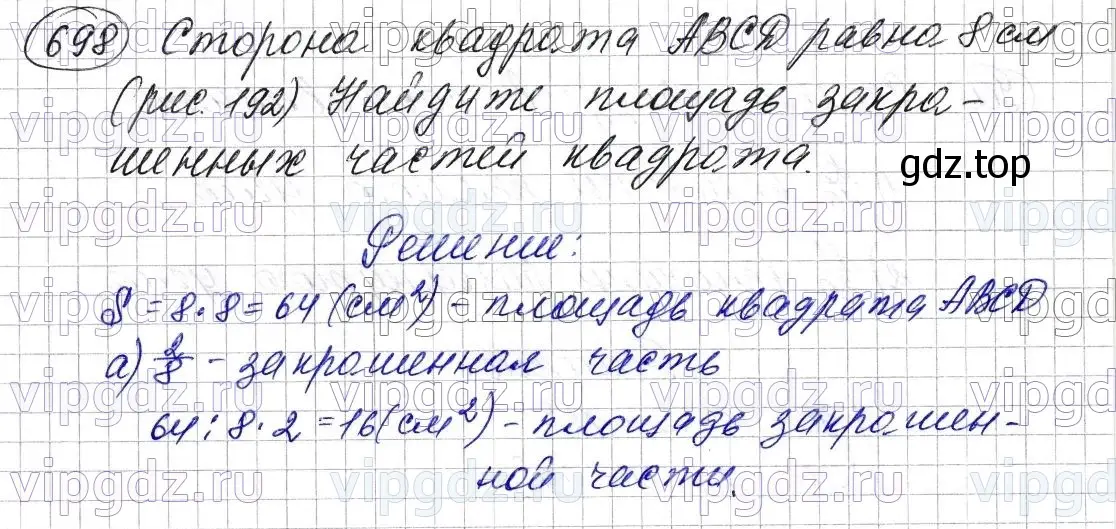 698 Сторона квадрата ABCD равна 8 см
(рис. 192) Найдите площадь закра-
шенных частей квадрата.
gdz.top
Решение:
S = 8 · 8 = 64 (см²) - площадь квадрата ABCD
а) 2/8 - закрашенная часть
64 : 8 · 2 = 16 (см²) - площадь закрашен-
ной части.
vipgdz.ru